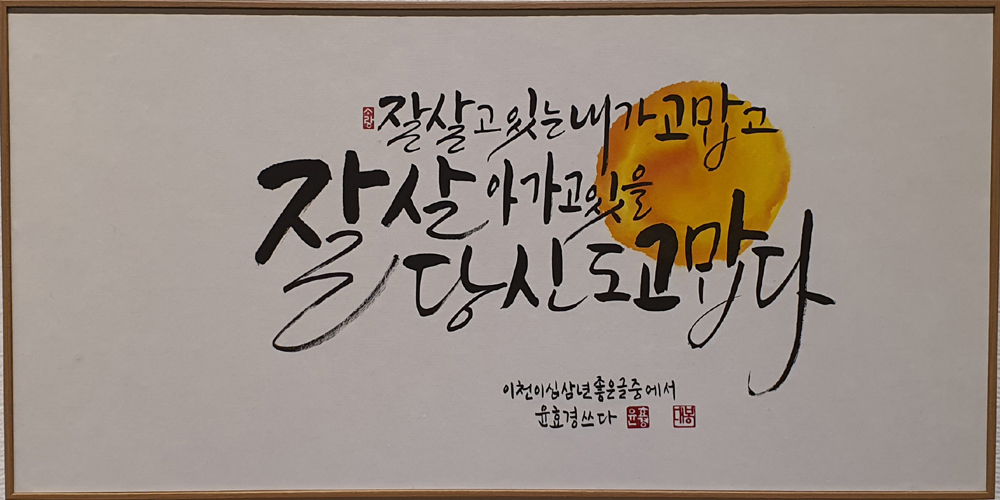 사랑
잘살고있는내가고맙고
잘살아가고있을
당신도고맙다
이천이십삼년좋은글중에서
윤효경쓰다